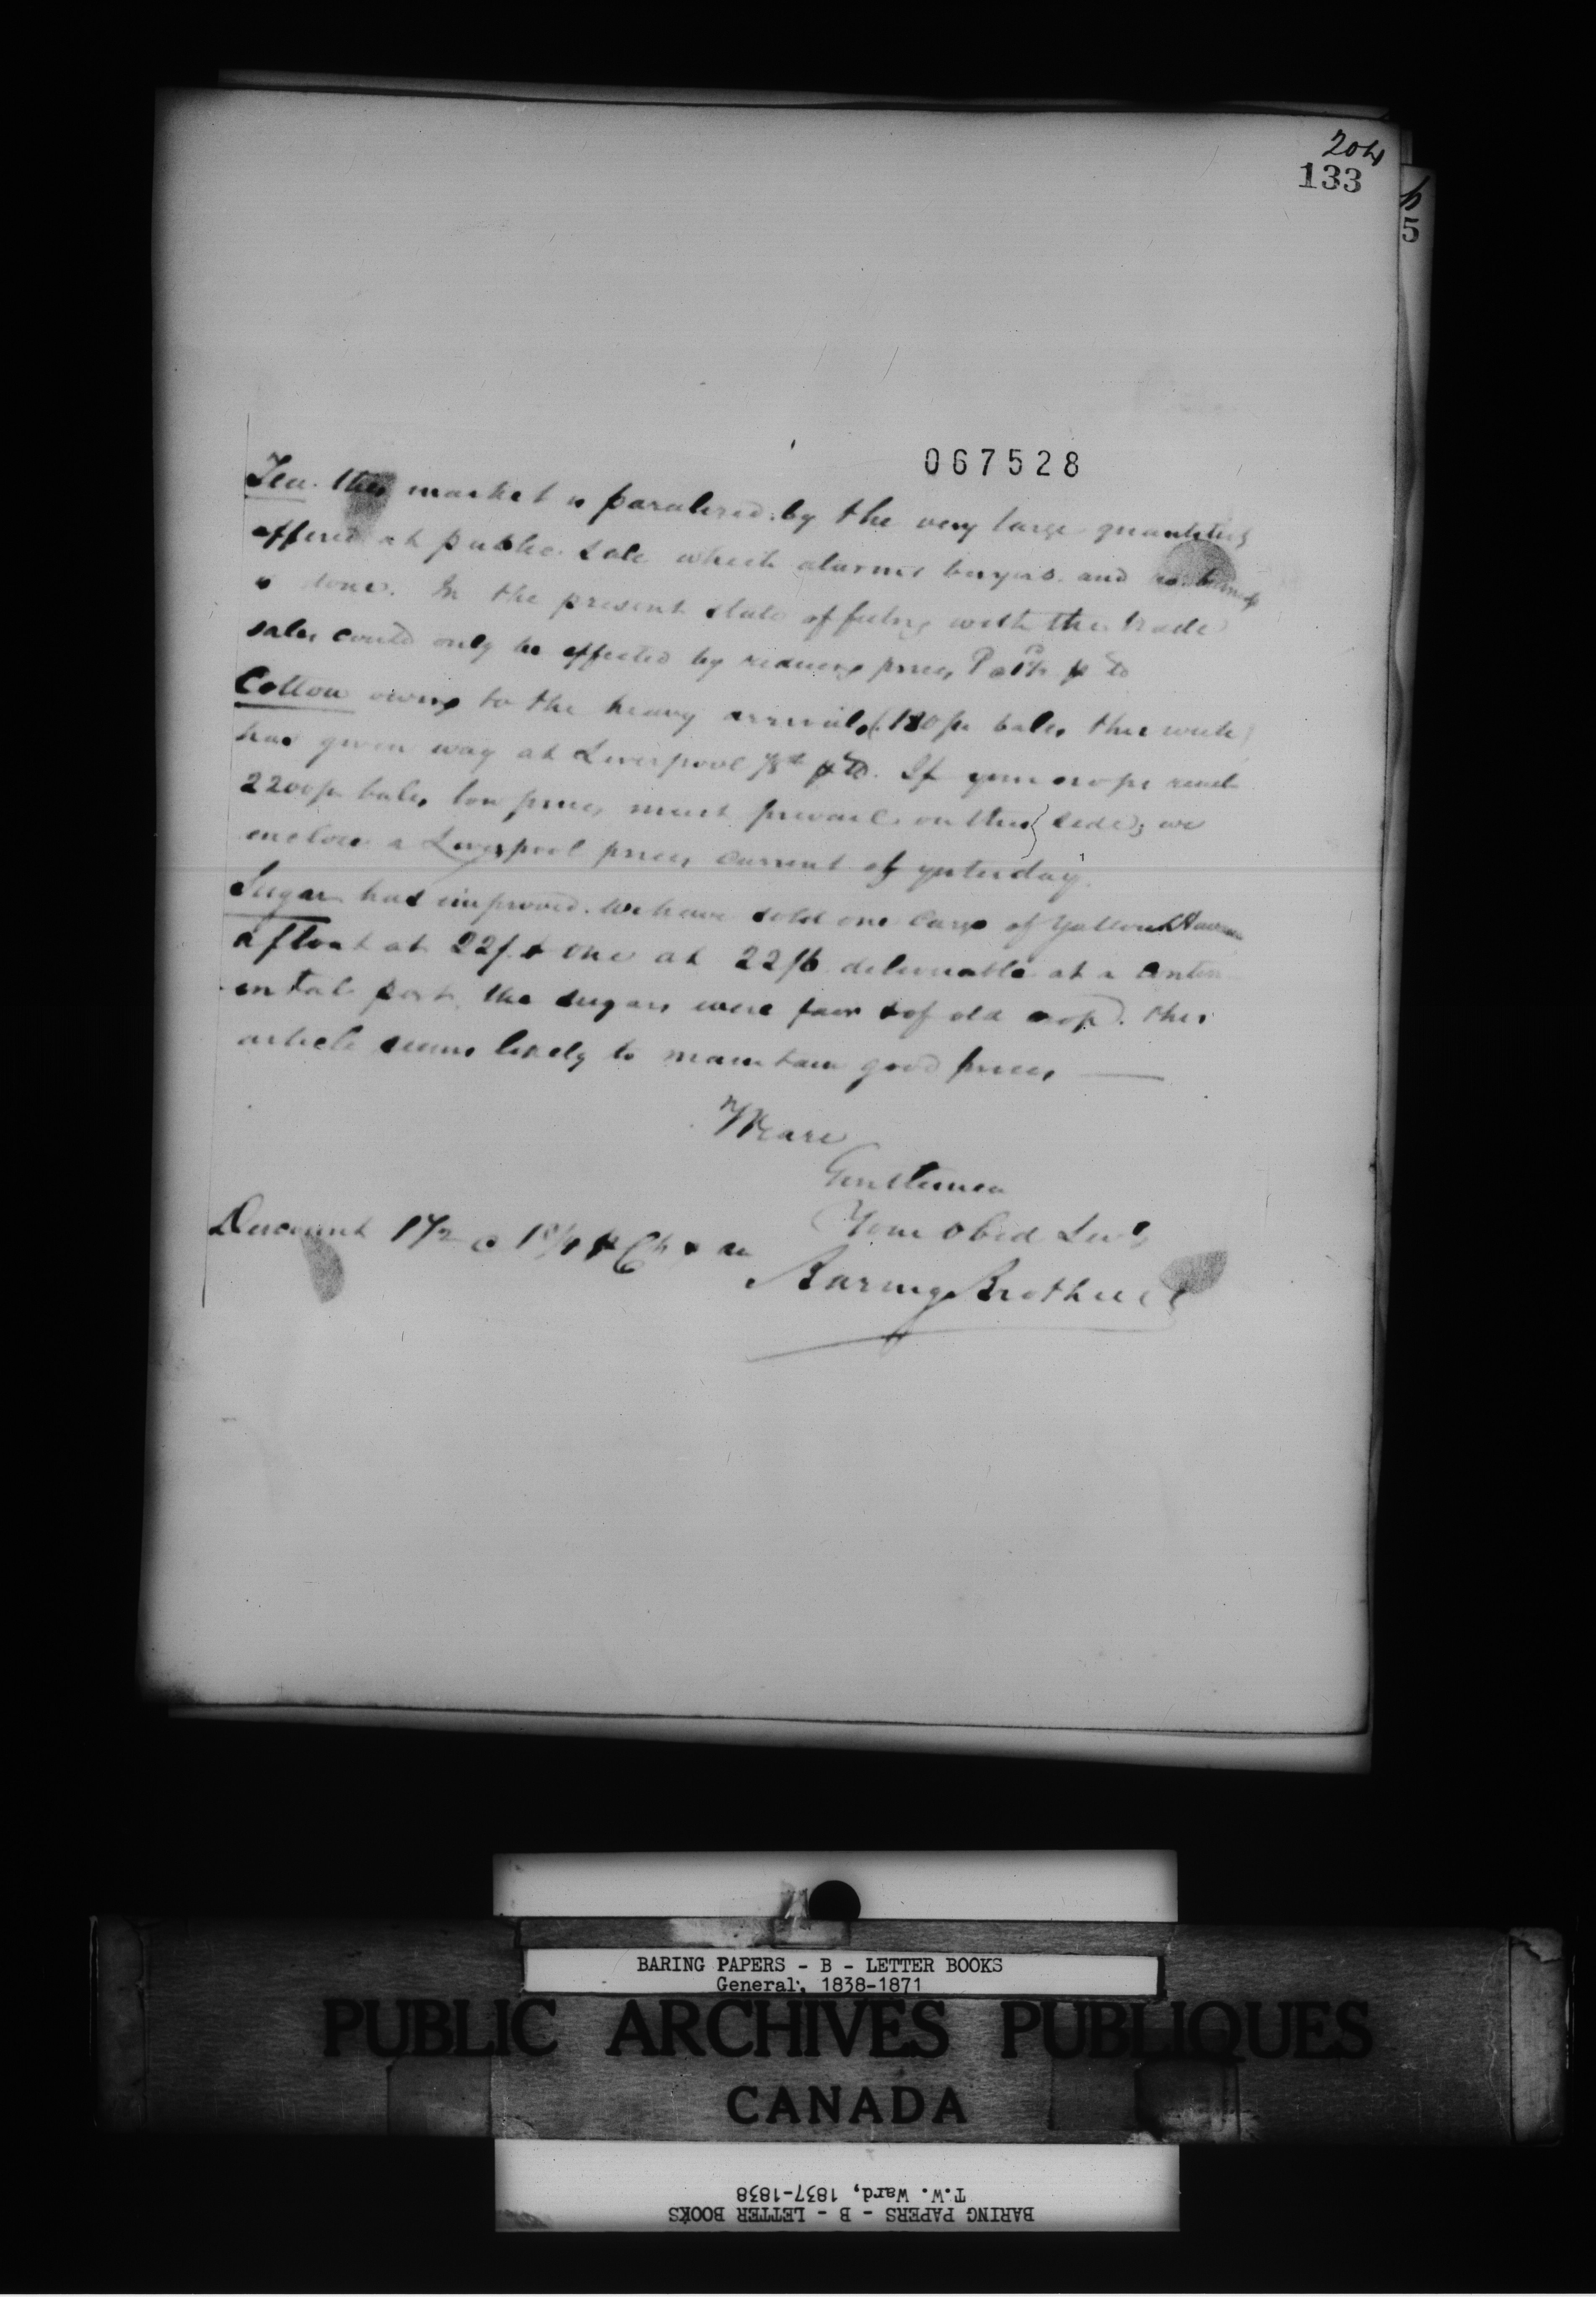 204
133
5
067528
Tea. this market is paralized by the very large quantities
offered at public sale which alarms buyers and no business
is done. In the present state of feeling with the trade
sales could only be effected by reducing prices
Cotton owing to the heavy arrivals (180/m bales this week)
has given way at Liverpool If your crops reach
2200/m bales low prices must prevail on this side; we
enclose a Liverpool prices current of yesterday.
Sugar has improved. We have sold one cargo of yellow Havana
afloat at 22/ & one at 22/6 deliverable at a contin-
-ental port, the sugars were fair & of old crop. this
article seems likely to maintain good prices
We are
Gentlemen
Your Obed Servs
Discount 1 1/2 a 1 3/4
Baring Brothers &
BARING PAPERS - B - LETTER BOOKS
General, 1838-1871
PUBLIC ARCHIVES PUBLIQUES
CANADA
T.W. Ward, 1837-1838
BARING PAPERS - B - LETTER BOOKS